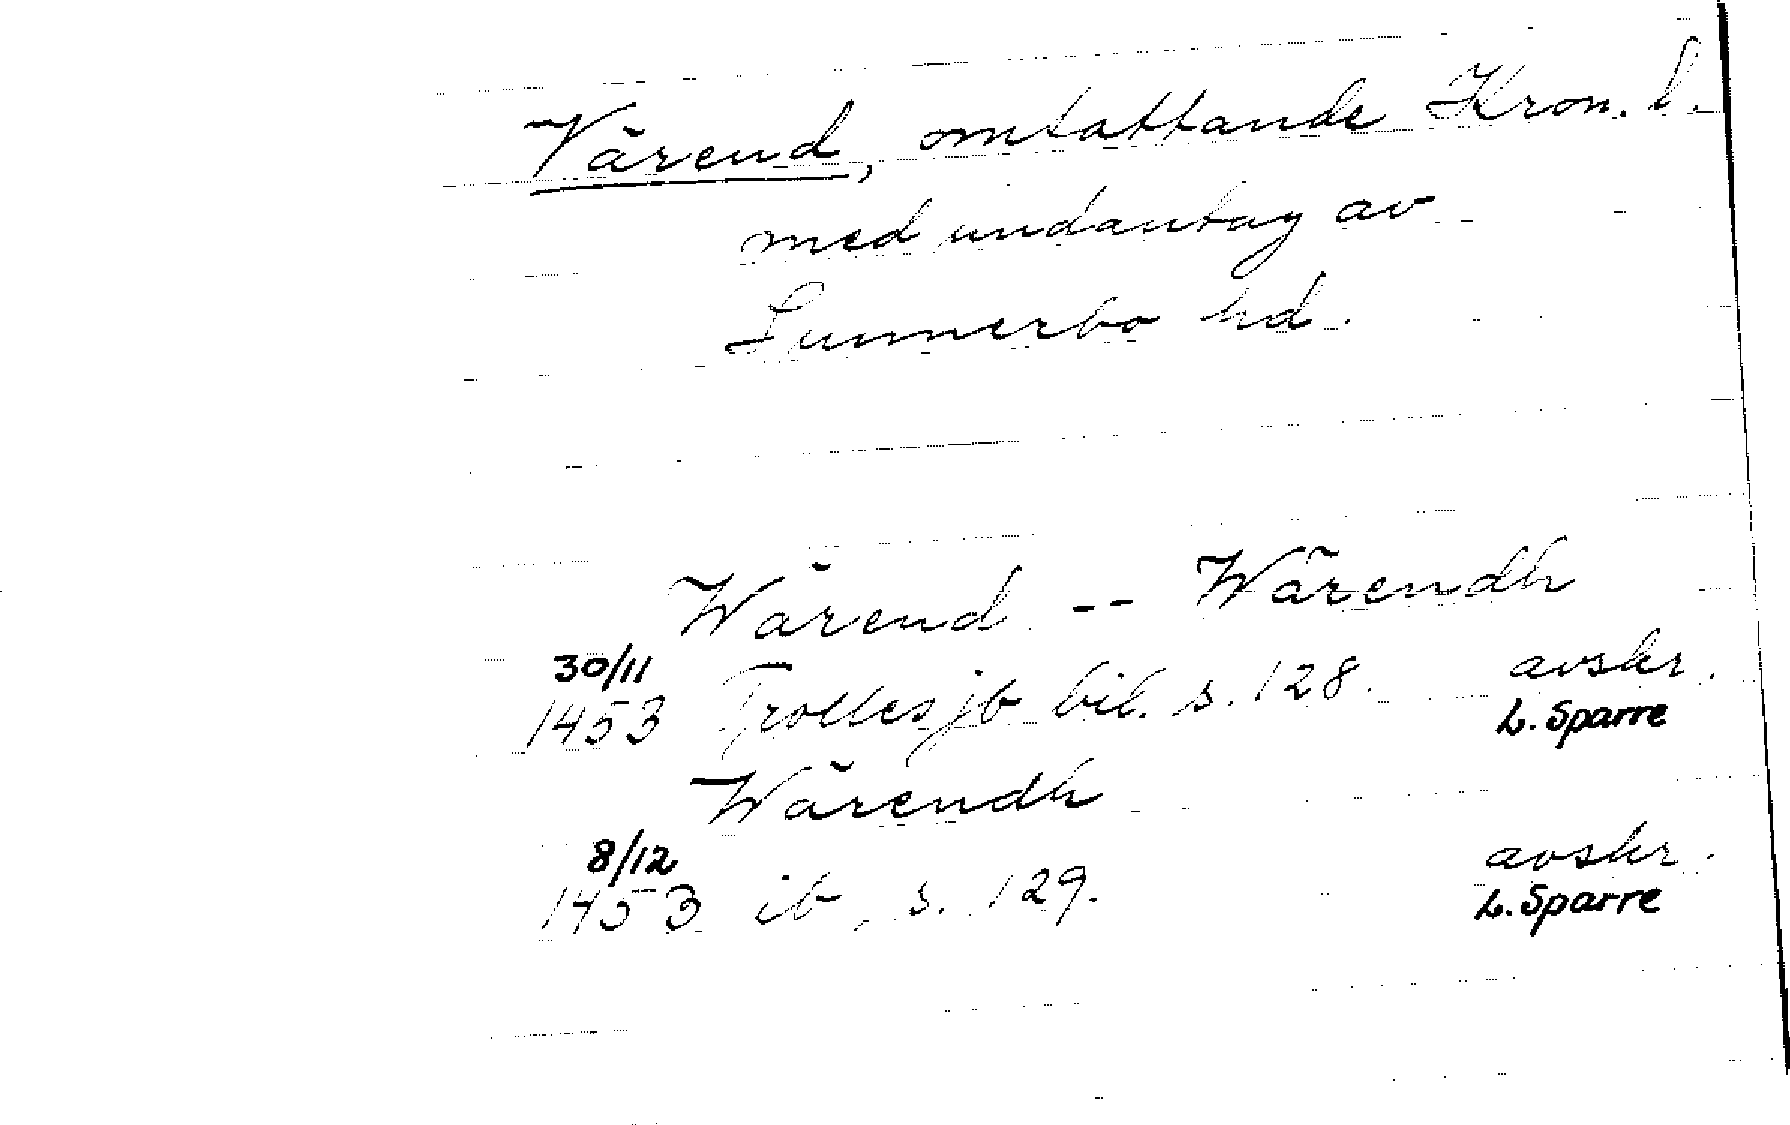 Värend, omfattande Kron. l.
med undantag av
Sunnerbo hd.
Wärend -- Wärendh
30/11
1453 Trolles jb bil. s. 128. avskr.
L. Sparre
Wärendh
8/12
1453 ib, s. 129. avskr.
L. Sparre